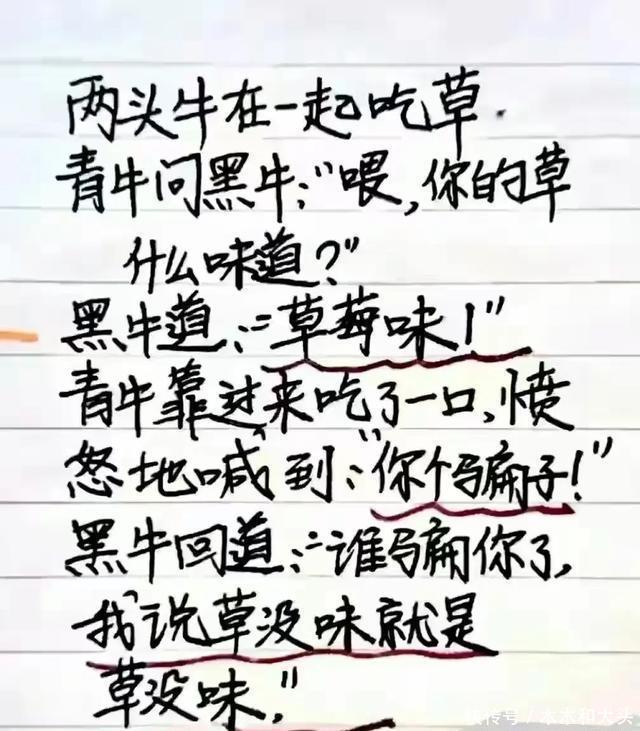 两头牛在一起吃草.
青牛问黑牛:"喂,你的草
什么味道?"
黑牛道:"草莓味!"
青牛靠过来吃了一口,愤
怒地喊到:"你个骗子!"
黑牛回道:"谁骗你了,
我说草没味就是
草没味,"
快传号/本本和大头